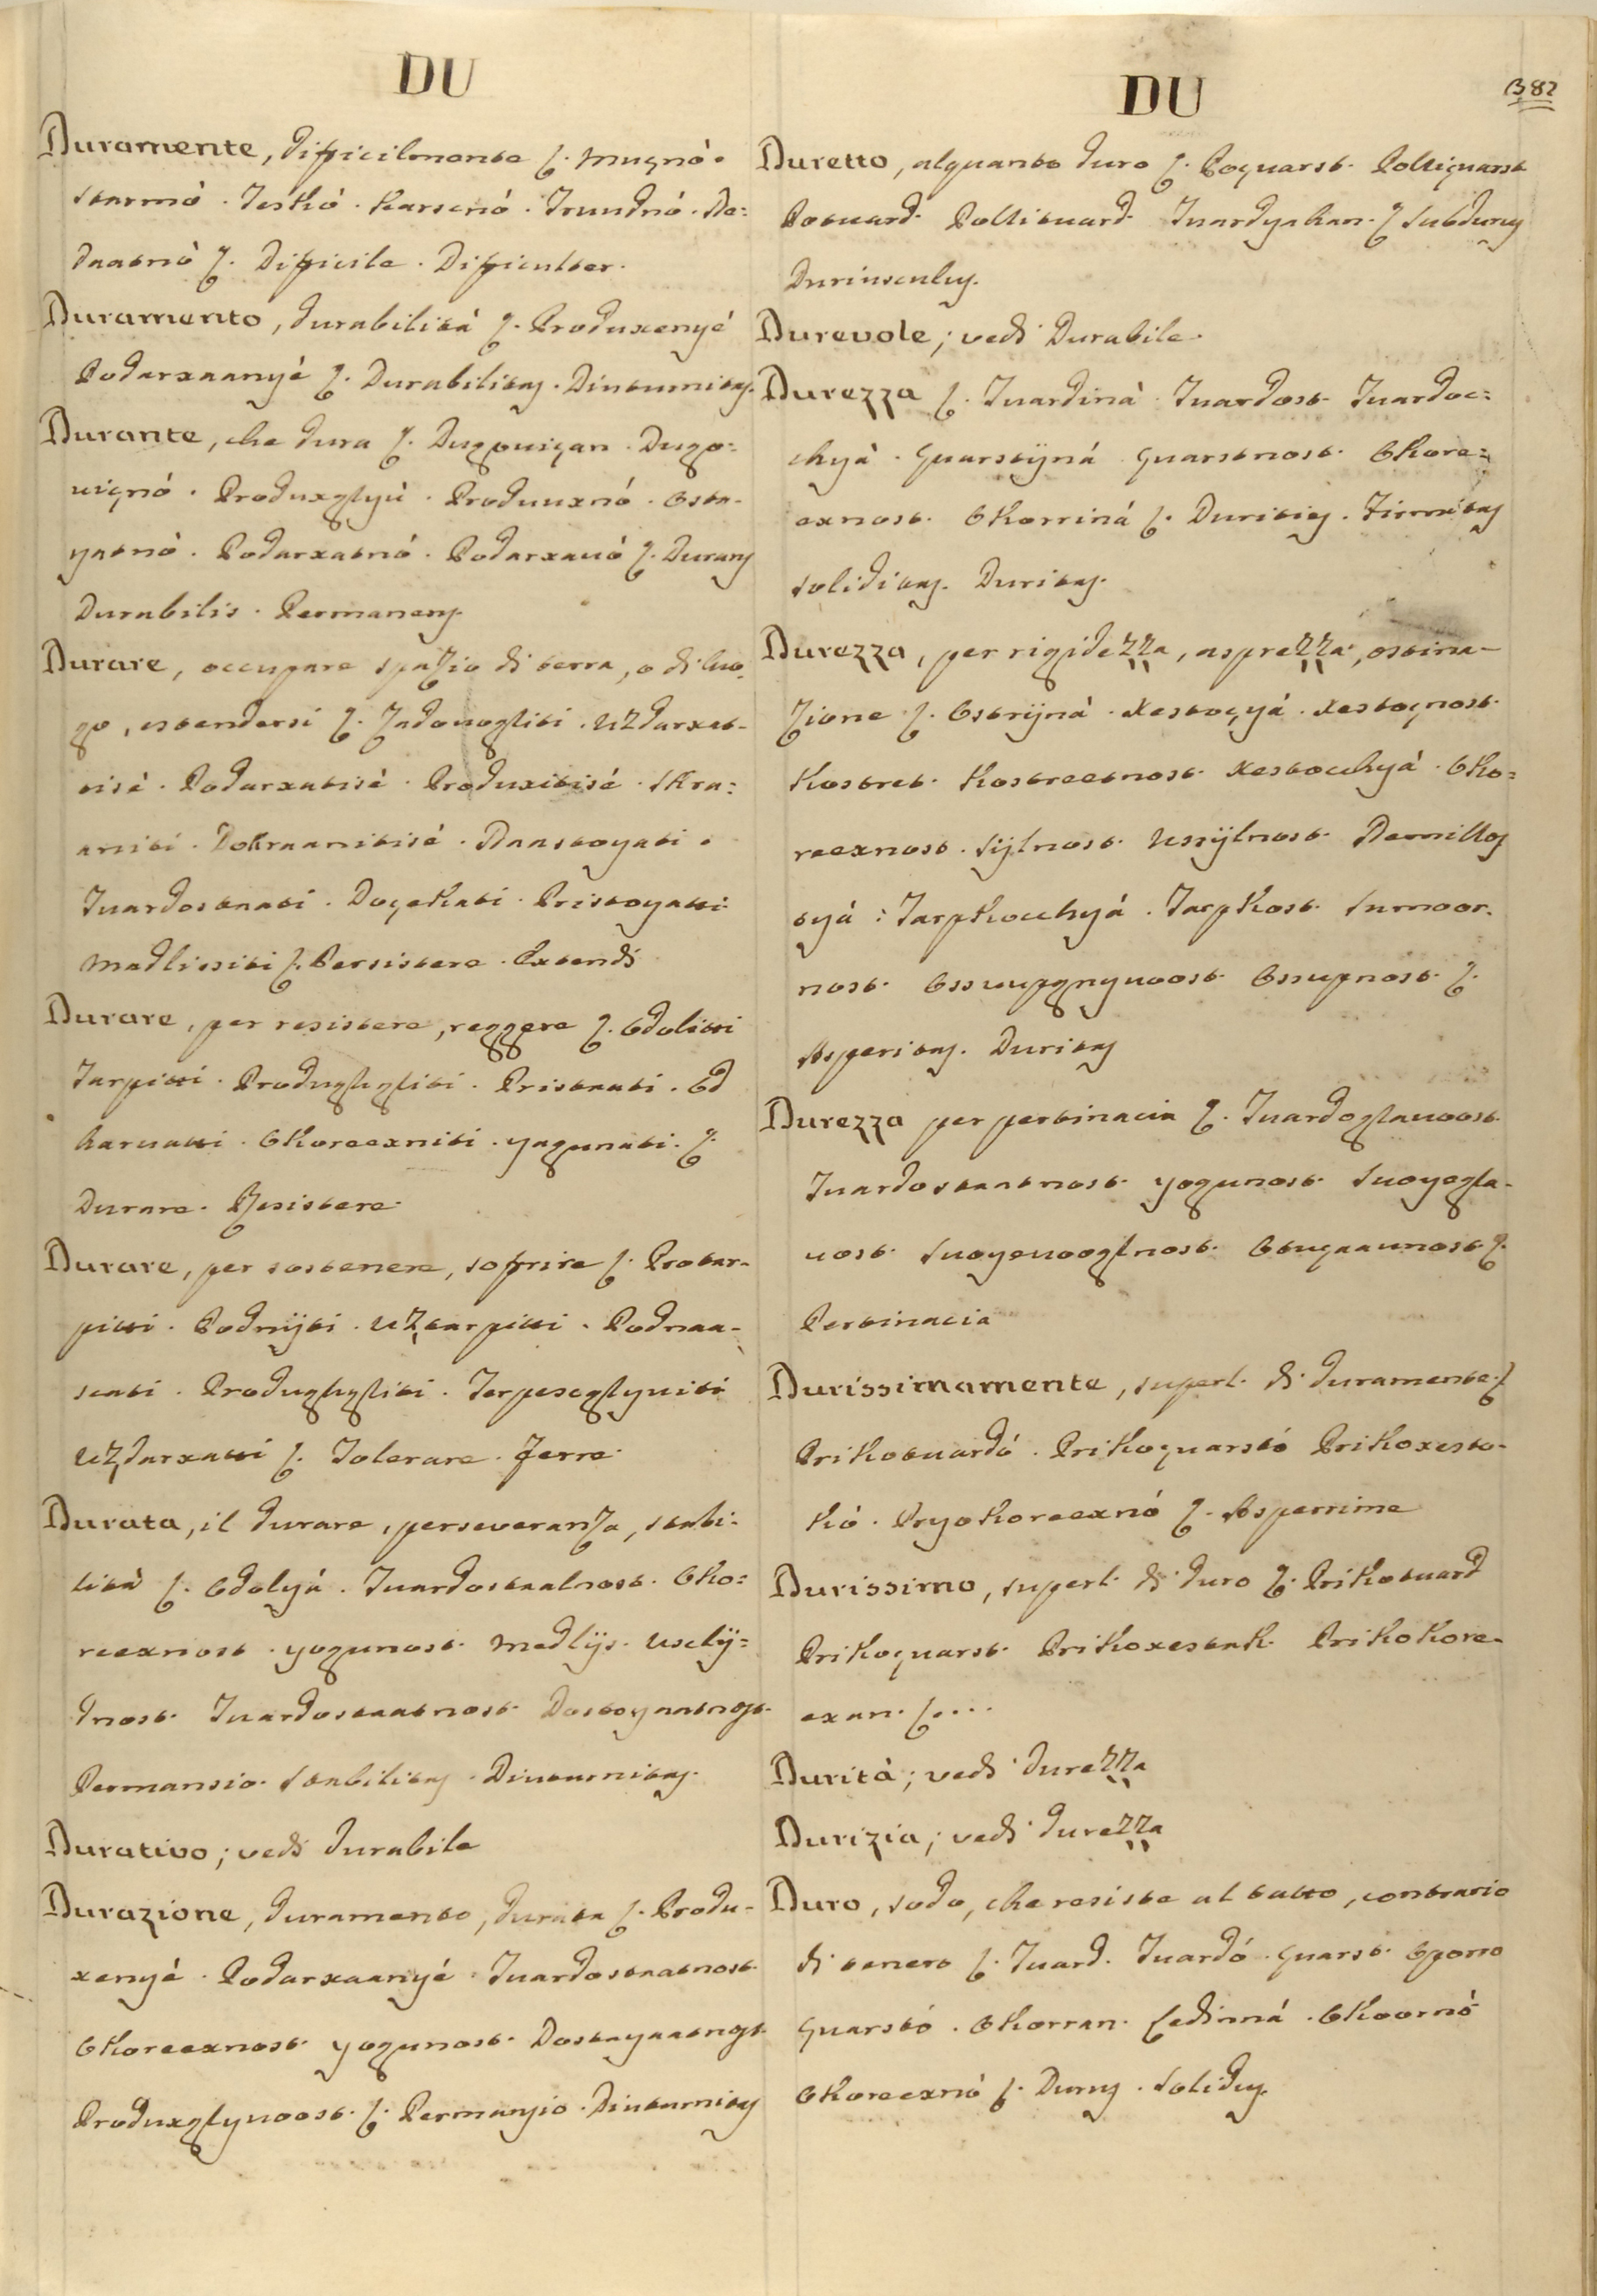 DU
Duramente, difficilmente ſ. Muçnò.
starmò. Teskó. Karsenó. Trundnó. Ne:
daatnò ſ. Difficile. Difficulter.
Duramento, durabilità ſ. Produxenyé
Podarxaanyé ſ. Durabilitas. Diuturnitas.
Durante, che dura ſ. Dugouiçan. Dugo-
uiçnó. Produxglyù. Produuxnó. Osta-
yatnò. Podarxatnó. Podarxauó ſ. Durans
Durabilis. Permanens.
Durare, occupare spazio di terra, o di luo-
go, estendersi ſ. Zadouogliti. Uzdarxat-
tisè. Podarxatisè. Produxitisé. Skra:
aniti. Dokraanitisè. Naastoyati.
Tuardostaati. Doçekati. Pristoyatti
Madlissiti ſ. Persistere. Extendi
Durare, per resistere, reggere ſ. Odolitti
Tarpitti. Produglygliti. Pristaati. Od
haruatti. Okoreexniti. yagunati. ſ.
Durare. Resistere.
Durare, per sostenere, soffrire ſ. Protar-
pitti. Podnijti. Uztarpitti. Podnaa-
scati. Produglygliti. Terpeseglyuiti
Uzdarxatti ſ. Tolerare. Ferre.
Durata, il durare, perseveranza, stabi-
lità ſ. Odolyá. Tuardostaalnost. Oko:
reexnost. yogunost. Madlijs. Uslij:
dnost. Tuardostaatnost. Dostoyaatnost.
Permansio. Stabilitas. Diuturnitas.
Durativo; vedi durabile
Durazione, duramento, durata ſ. Produ-
xenyé. Podarxaanyé. Tuardostaatnost.
Okoreexnost. yogunost. Dostayaatnost.
Produxglyuoost. ſ. Permansio. Diuturnitas
DU
382
Duretto, alquanto duro ſ. Poçuarst. Polliçuarst
Potuard. Pollituard. Tuardyahan. ſ Subdurus
Duriusculus.
Durevole; vedi Durabile.
Durezza ſ. Tuardinà. Tuardost. Tuardoc:
chyà. Çuarstijná. Çuarstnost. Okore:
exnost. Okorriná ſ. Durities. Firmitas
Soliditas. Duritas.
Durezza, per rigidezza, asprezza, ostina-
zione ſ. Ostrijnà. Xestoçyá. Xestoçnost.
Kostret. Kostreetnost. Xestocchyà. Oko:
reexnost. Sijlnost. Ussijlnost. Nemillos
tyá. Tarpkocchyá. Tarpkost. Sumoor.
nost. Ossuupgnyuoost. Ossupnost. ſ.
Asperitas. Duritas
Durezza per pertinacia ſ. Tuardoglauoost.
Tuardostaatnost. yogunost. Suoyegla-
uost. Suoyeuooglnost. Obtuçaaunost. ſ.
Pertinacia
Durissimamente, superl. di duramente. ſ
Prikotuardó. Prikoçuarstó Prikoxesto-
kó. Pryokoreexnó ſ. Asperrime
Durissimo, superl. di duro ſ. Prikotuard
Prikoçuarst. Prikoxestak. Prikokore-
exan. ſ....
Durità; vedi durezza
Durizia; vedi durezza
Duro, sodo, che resiste al tatto, contrario
di tenero ſ. Tuard. Tuardó. Çuarst. Oporno
Çuarstó. Okorran. Ledinná. Okoornò
Okoreexnò ſ. Durus. Solidus.